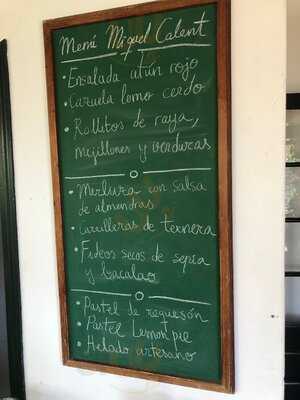 Menú Miquel Calent
• Ensalada atún rojo
• Cazuela lomo cerdo
• Rollitos de raya,
mejillones y verduras
• Merluza con salsa
de almendras
• Carrilleras de ternera
• Fideos secos de sepia
y bacalao
• Pastel de requesón
• Pastel Lemon pie
• Helado artesano